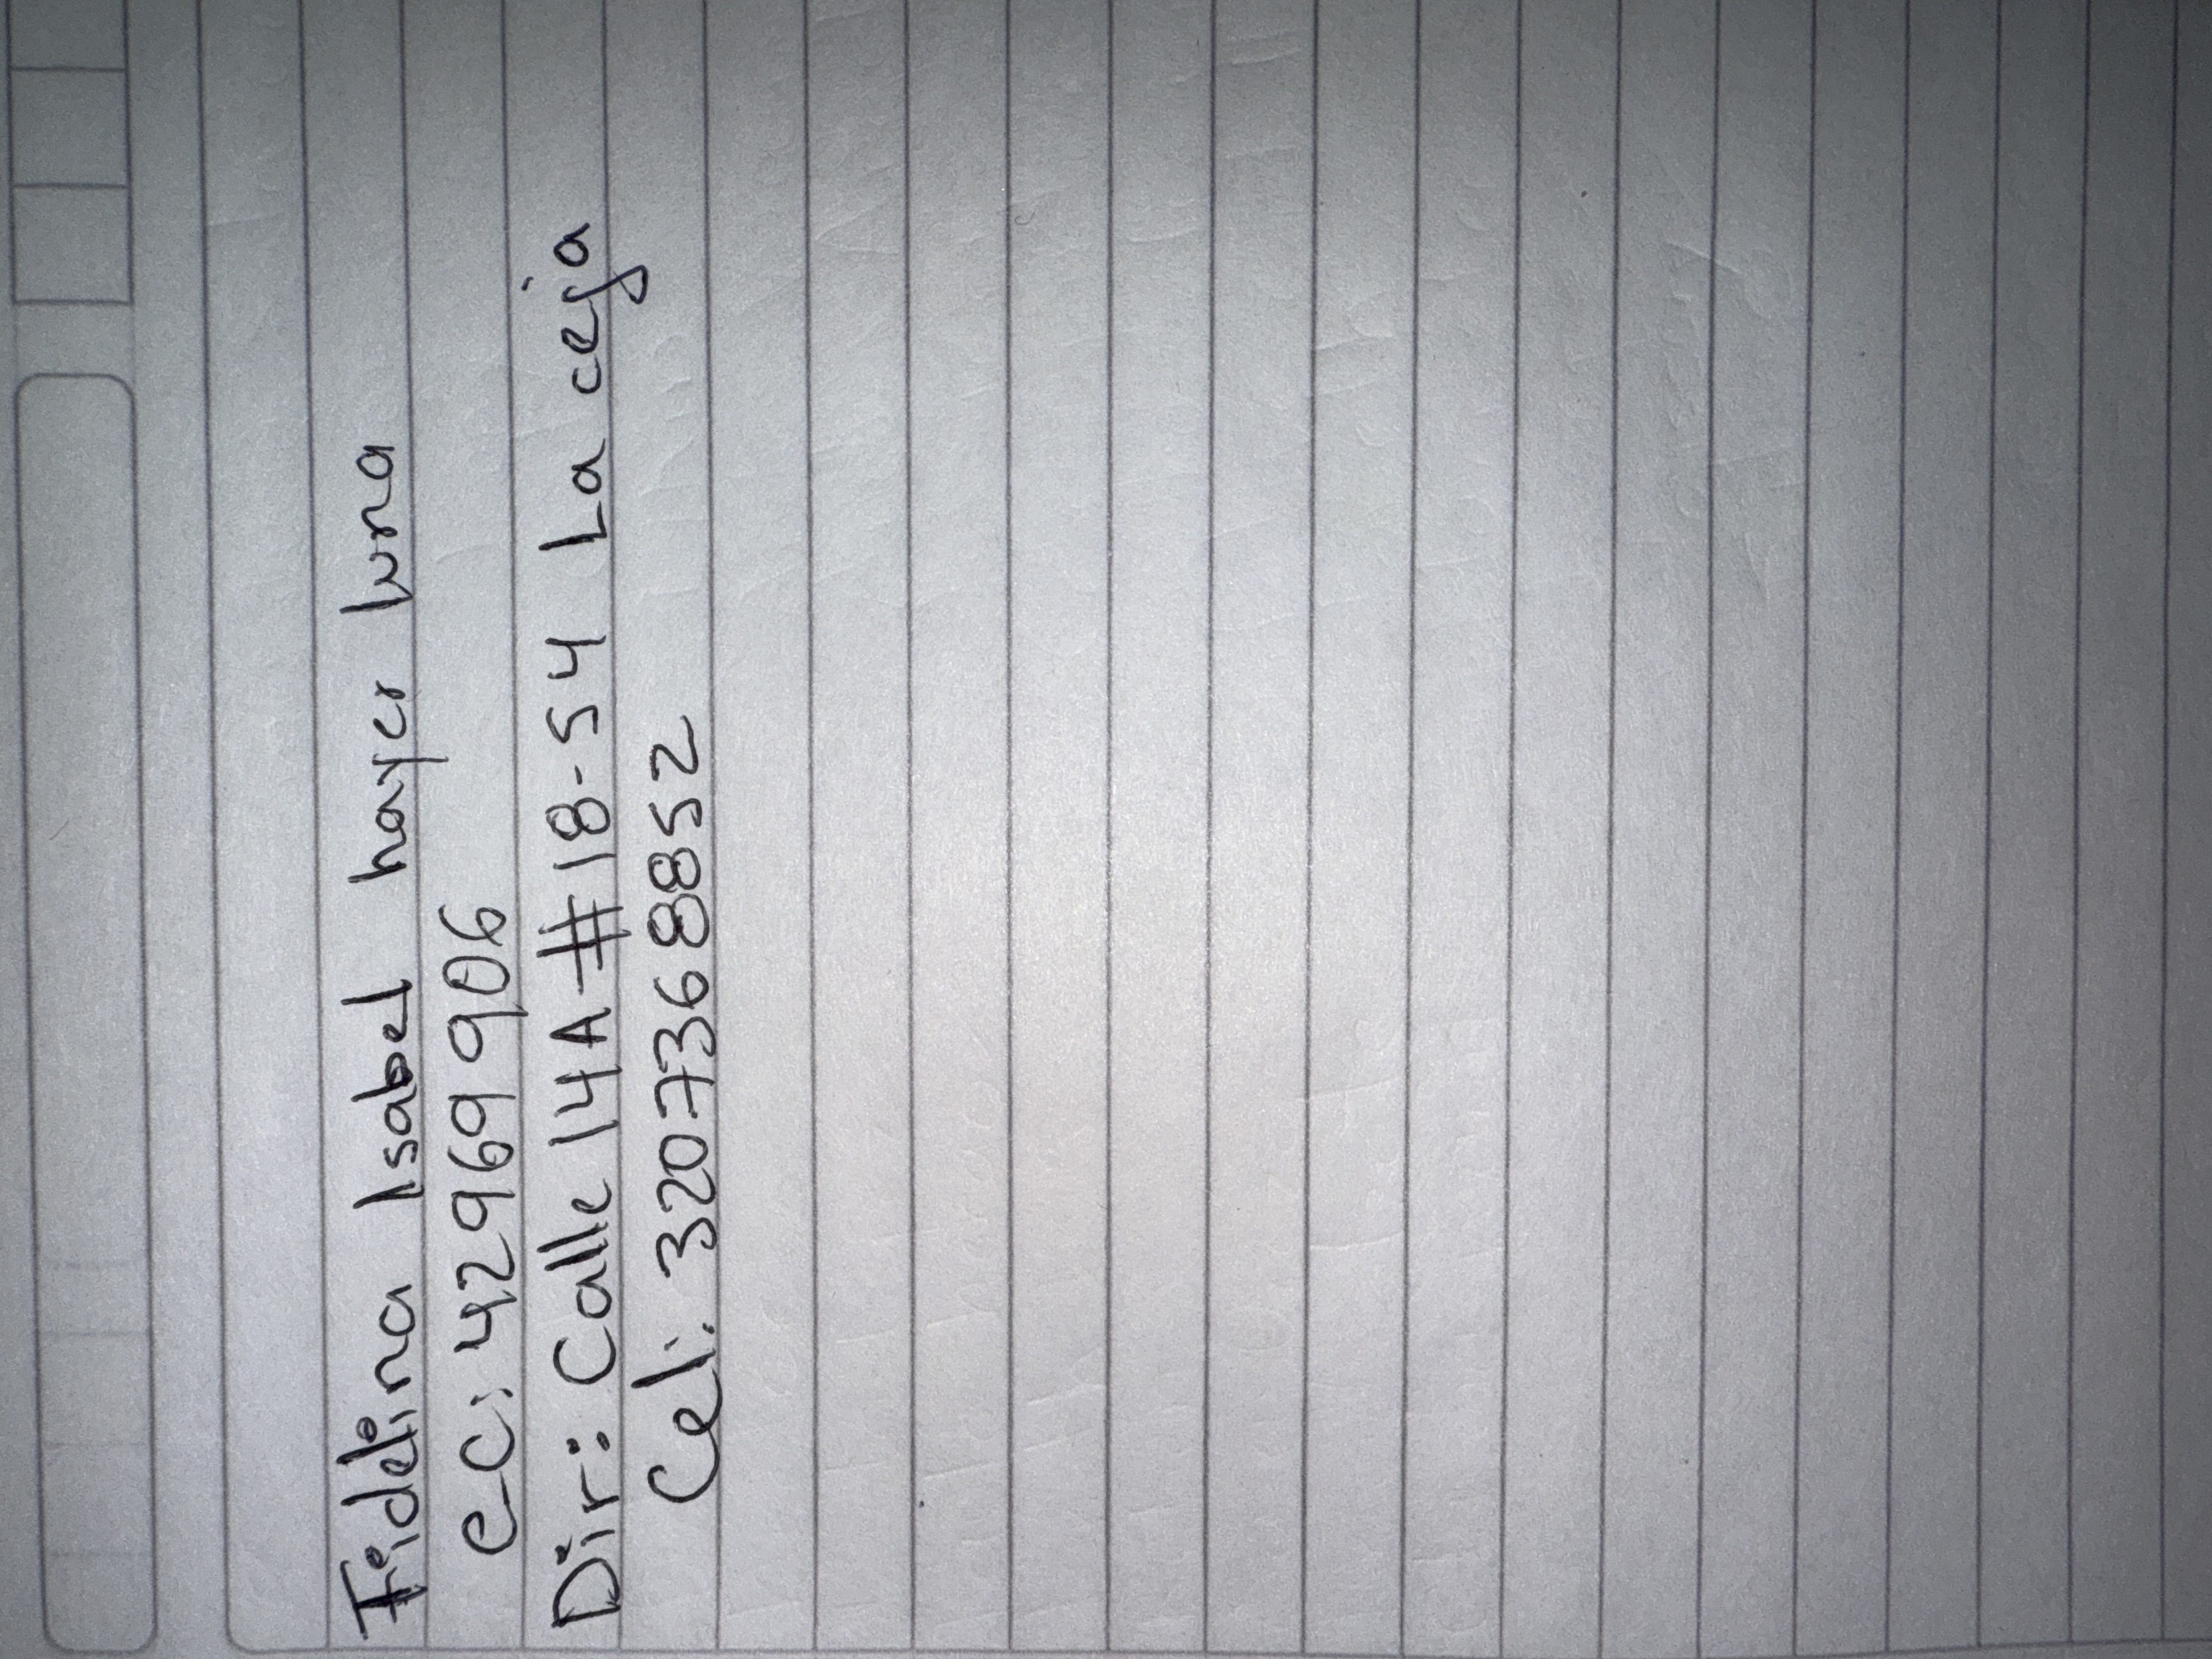 Fidelina Isabel hayer luna
C.C: 42969906
Dir: Calle 14A #18-54 La ceja
Cel: 3207368852